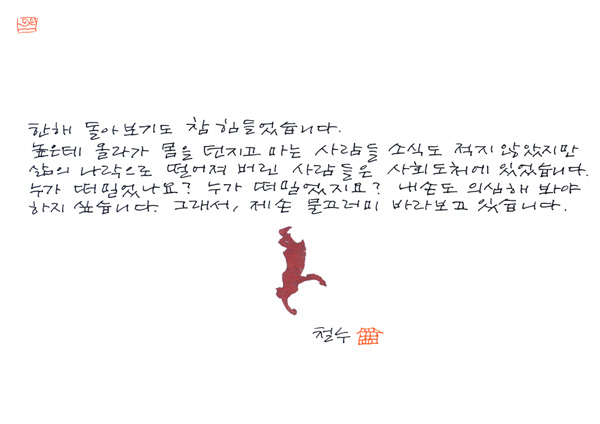 한해 돌아보기도 참 힘들었습니다.
높은데 올라가 몸을 던지고 마는 사람들 소식도 적지 않았지만
삶의 나락으로 떨어져 버린 사람들은 사회도처에 있었습니다.
누가 떠밀었나요? 누가 떠밀었지요? 내손도 의심해 봐야
하지 싶습니다. 그래서, 제손 물끄러미 바라보고 있습니다.
철수